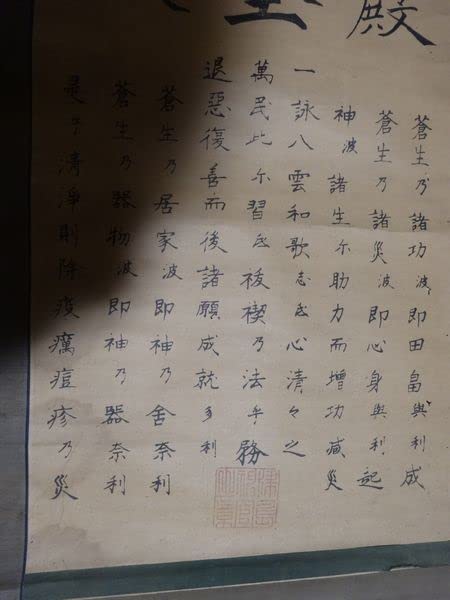 殿
蒼生乃諸功波即田畠與利成
蒼生乃諸災波即心身與利起
神波諸生尓助力而增功滅災
一詠八雲和歌志氐心清々之
萬民此尓習氐祓禊乃法乎務
退惡復善而後諸願成就多利
蒼生乃居家波即神乃舍奈利
蒼生乃器物波即神乃器奈利
乎清淨則除疫癘痘疹乃災